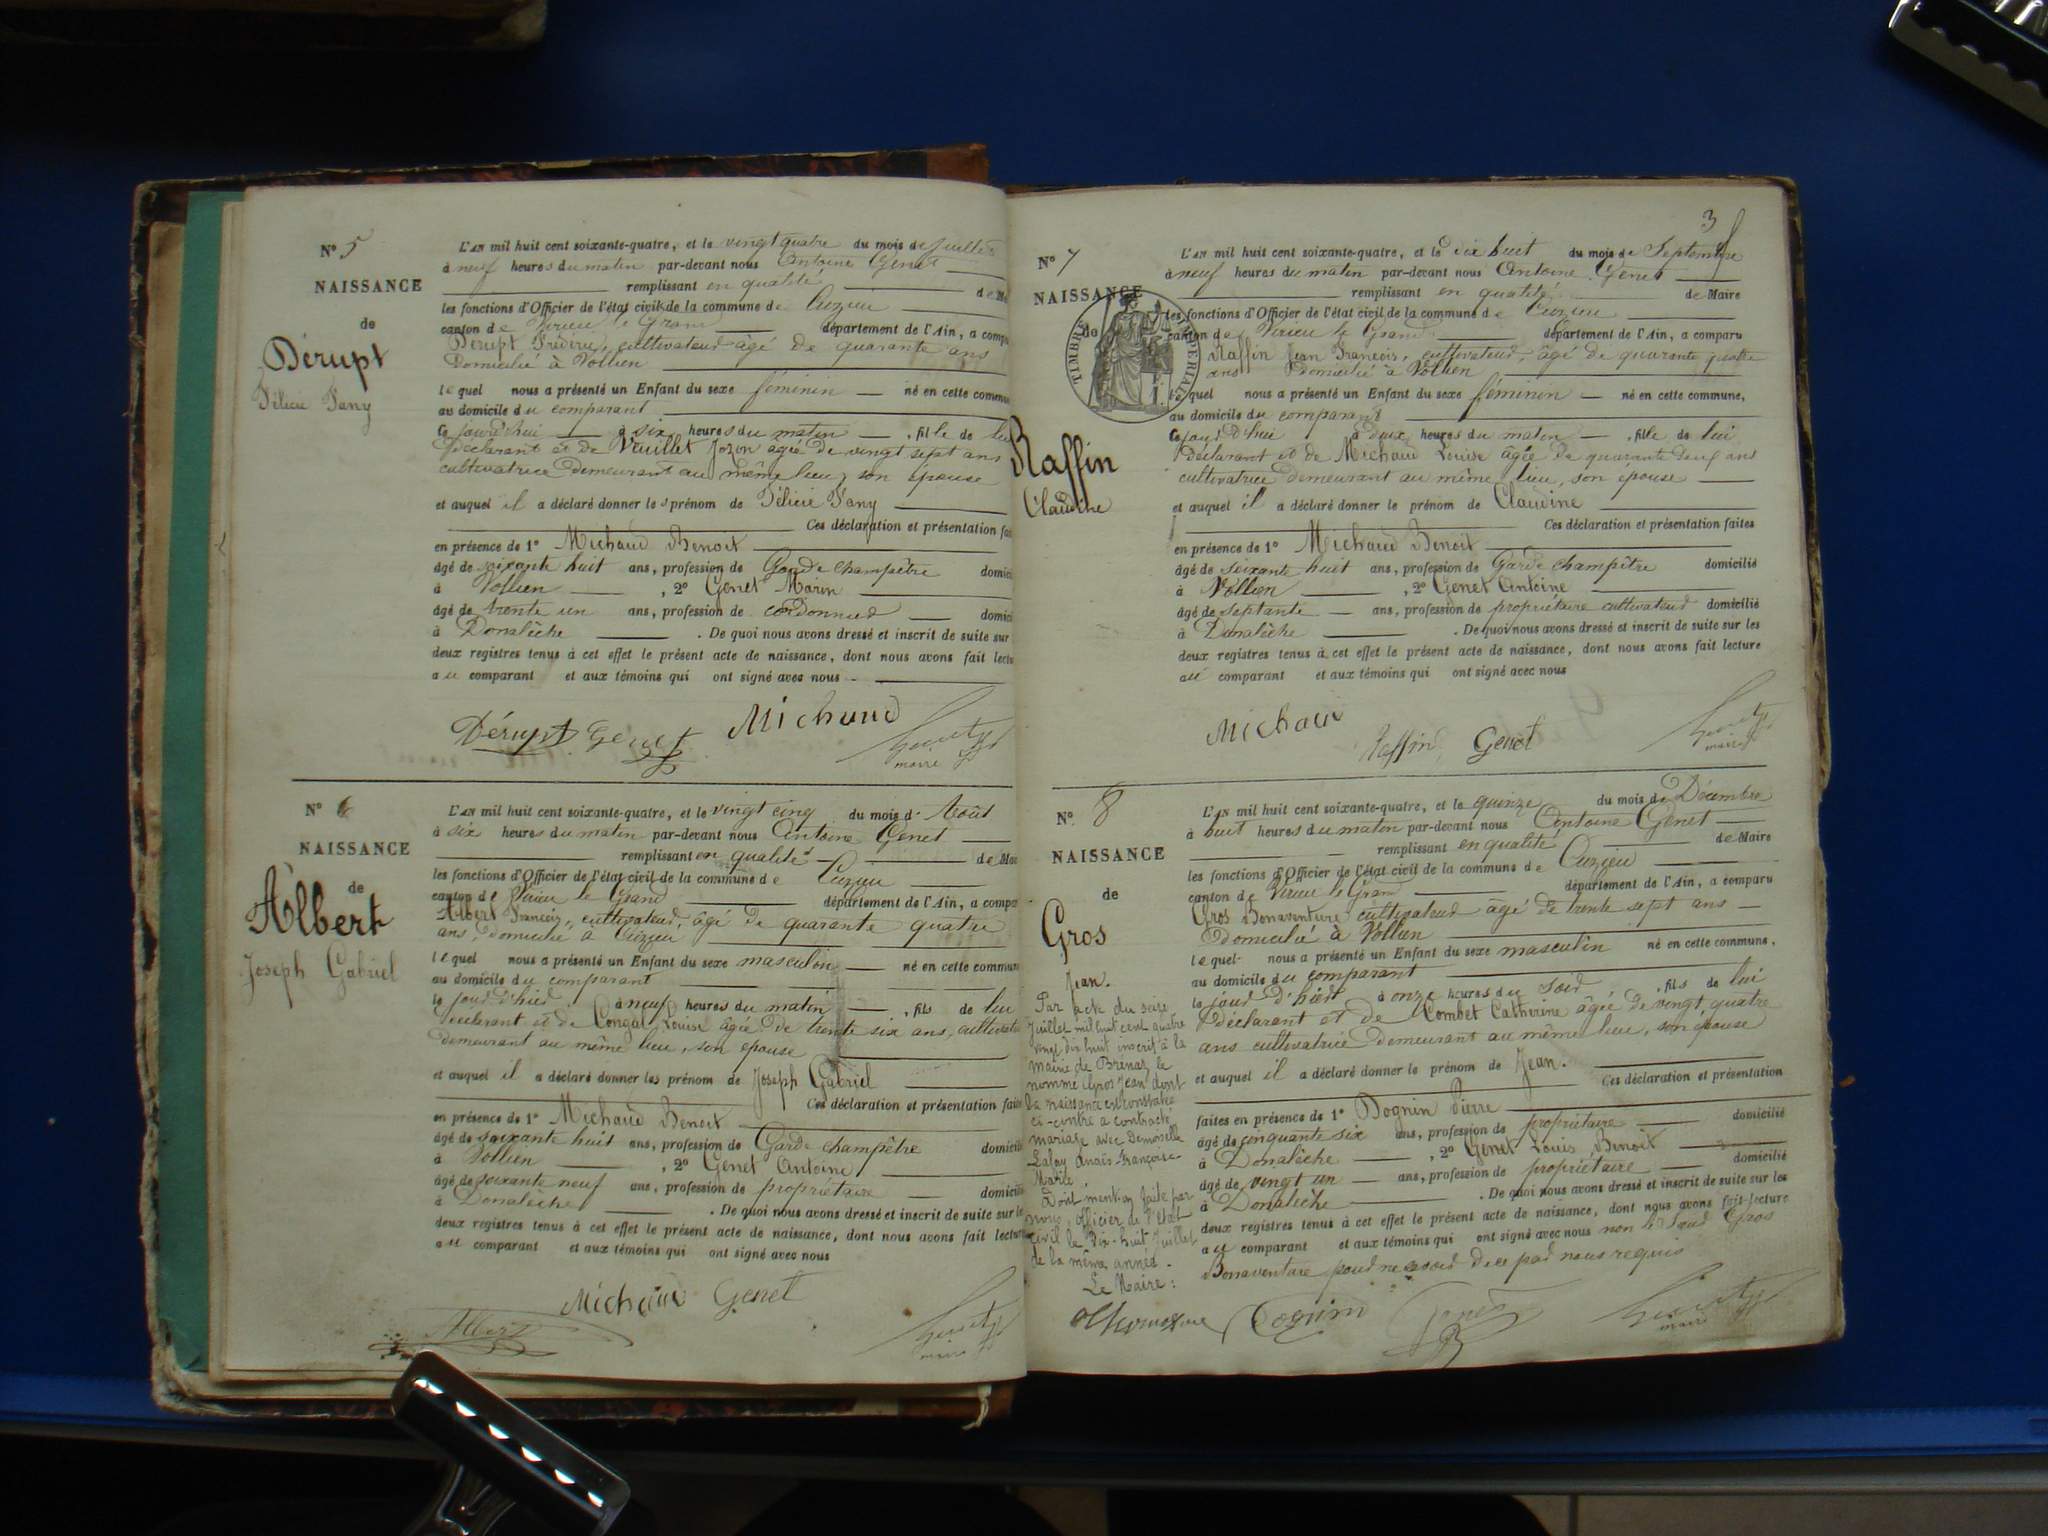 N° 5
NAISSANCE
de
Dérupt
Félicie Fany
L'AN mil huit cent soixante-quatre, et le vingt quatre du mois de Juillet
à neuf heures du matin par-devant nous Antoine Genet
remplissant en qualité de Ma
les fonctions d'Officier de l'état civil de la commune de Cuzieu
canton de Virieu le Grand département de l'Ain, a compa
Dérupt Frédéric, cultivateur âgé de quarante ans
Domicilié à Vollien
lequel nous a présenté un Enfant du sexe féminin né en cette commun
au domicile du comparant
Ce jourd'hui à six heures du matin, fille de lui
Déclarant et de Vuillet Jozon âgée de vingt sept ans
cultivatrice demeurant au même lieu, son épouse
et auquel il a déclaré donner les prénom de Félicie Fany
Ces déclaration et présentation fai
en présence de 1° Michaud Benoit
âgé de soixante huit ans, profession de Garde champêtre domici
à Vollien, 2° Genet Marin
âgé de trente un ans, profession de cordonnier domici
à Donalèche. De quoi nous avons dressé et inscrit de suite sur
deux registres tenus à cet effet le présent acte de naissance, dont nous avons fait lectu
au comparant et aux témoins qui ont signé avec nous
Dérupt Genet Michaud
maire
N° 6
NAISSANCE
de
Albert
Joseph Gabriel
L'AN mil huit cent soixante-quatre, et le vingt cinq du mois d' Août
à six heures du matin par-devant nous Antoine Genet
remplissant en qualité de Mai
les fonctions d'Officier de l'état civil de la commune de Cuzieu
canton de Virieu le Grand département de l'Ain, a compa
Albert François, cultivateur, âgé de quarante quatre
ans, domicilié à Cuzieu
lequel nous a présenté un Enfant du sexe masculin né en cette commun
au domicile du comparant
le jour d'hier à neuf heures du matin, fils de lui
déclarant et de Congal Louise âgée de trente six ans, cultivatri
demeurant au même lieu, son épouse
et auquel il a déclaré donner les prénom de Joseph Gabriel
Ces déclaration et présentation faites
en présence de 1° Michaud Benoit
âgé de soixante huit ans, profession de Garde champêtre domicili
à Vollien, 2° Genet Antoine
âgé de soixante neuf ans, profession de propriétaire domicili
à Donalèche. De quoi nous avons dressé et inscrit de suite sur le
deux registres tenus à cet effet le présent acte de naissance, dont nous avons fait lectur
au comparant et aux témoins qui ont signé avec nous
Michaud Genet
Albert
maire
3
N° 7
NAISSANCE
de
TIMBRE IMPERIAL
Raffin
Claudine
L'AN mil huit cent soixante-quatre, et le dix huit du mois de Septembre
à neuf heures du matin par-devant nous Antoine Genet
remplissant en qualité de Maire
les fonctions d'Officier de l'état civil de la commune de Cuzieu
canton de Virieu le Grand département de l'Ain, a comparu
Raffin Jean François, cultivateur, âgé de quarante quatre
ans domicilié à Vollien
lequel nous a présenté un Enfant du sexe féminin né en cette commune,
au domicile du comparant
Ce jour d'hui à deux heures du matin, fille de lui
Déclarant et de Michaud Louise âgée de quarante deux ans
cultivatrice demeurant au même lieu, son épouse
et auquel il a déclaré donner le prénom de Claudine
Ces déclaration et présentation faites
en présence de 1° Michaud Benoit
âgé de soixante huit ans, profession de Garde champêtre domicilié
à Vollien, 2° Genet Antoine
âgé de septante ans, profession de propriétaire cultivateur domicilié
à Donalèche. De quoi nous avons dressé et inscrit de suite sur les
deux registres tenus à cet effet le présent acte de naissance, dont nous avons fait lecture
au comparant et aux témoins qui ont signé avec nous
Michau
Raffin Genet
maire
N° 8
NAISSANCE
de
Gros
Jean.
Par acte du seize
Juillet mil huit cent quatre
vingt dix huit inscrit à la
mairie de Brénaz le
nommé Gros Jean dont
la naissance est constatée
ci-contre a contracté
mariage avec Demoiselle
Lafay Anaïs-Françoise-
Marie.
Dont mention faite par
nous, officier de l'Etat
civil le dix-huit Juillet
de la même année.
Le Maire:
L'AN mil huit cent soixante-quatre, et le quinze du mois de Décembre
à huit heures du matin par-devant nous Antoine Genet
remplissant en qualité de Maire
les fonctions d'Officier de l'état civil de la commune de Cuzieu
canton de Virieu le Grand département de l'Ain, a comparu
Gros Bonaventure cultivateur âgé de trente sept ans
Domicilié à Vollien
lequel nous a présenté un Enfant du sexe masculin né en cette commune,
au domicile du comparant
le jour d'hier à onze heures du soir, fils de lui
déclarant et de Combet Catherine âgée de vingt quatre
ans cultivatrice demeurant au même lieu, son épouse
et auquel il a déclaré donner le prénom de Jean.
Ces déclaration et présentation
faites en présence de 1° Dognin Pierre
âgé de cinquante six ans, profession de propriétaire domicilié
à Donalèche, 2° Genet Louis Benoit
âgé de vingt un ans, profession de propriétaire domicilié
à Donalèche. De quoi nous avons dressé et inscrit de suite sur les
deux registres tenus à cet effet le présent acte de naissance, dont nous avons fait lecture
au comparant et aux témoins qui ont signé avec nous non le Sieur Gros
Bonaventure pour ne savoir de ce par nous requis
Dognin Genet
maire